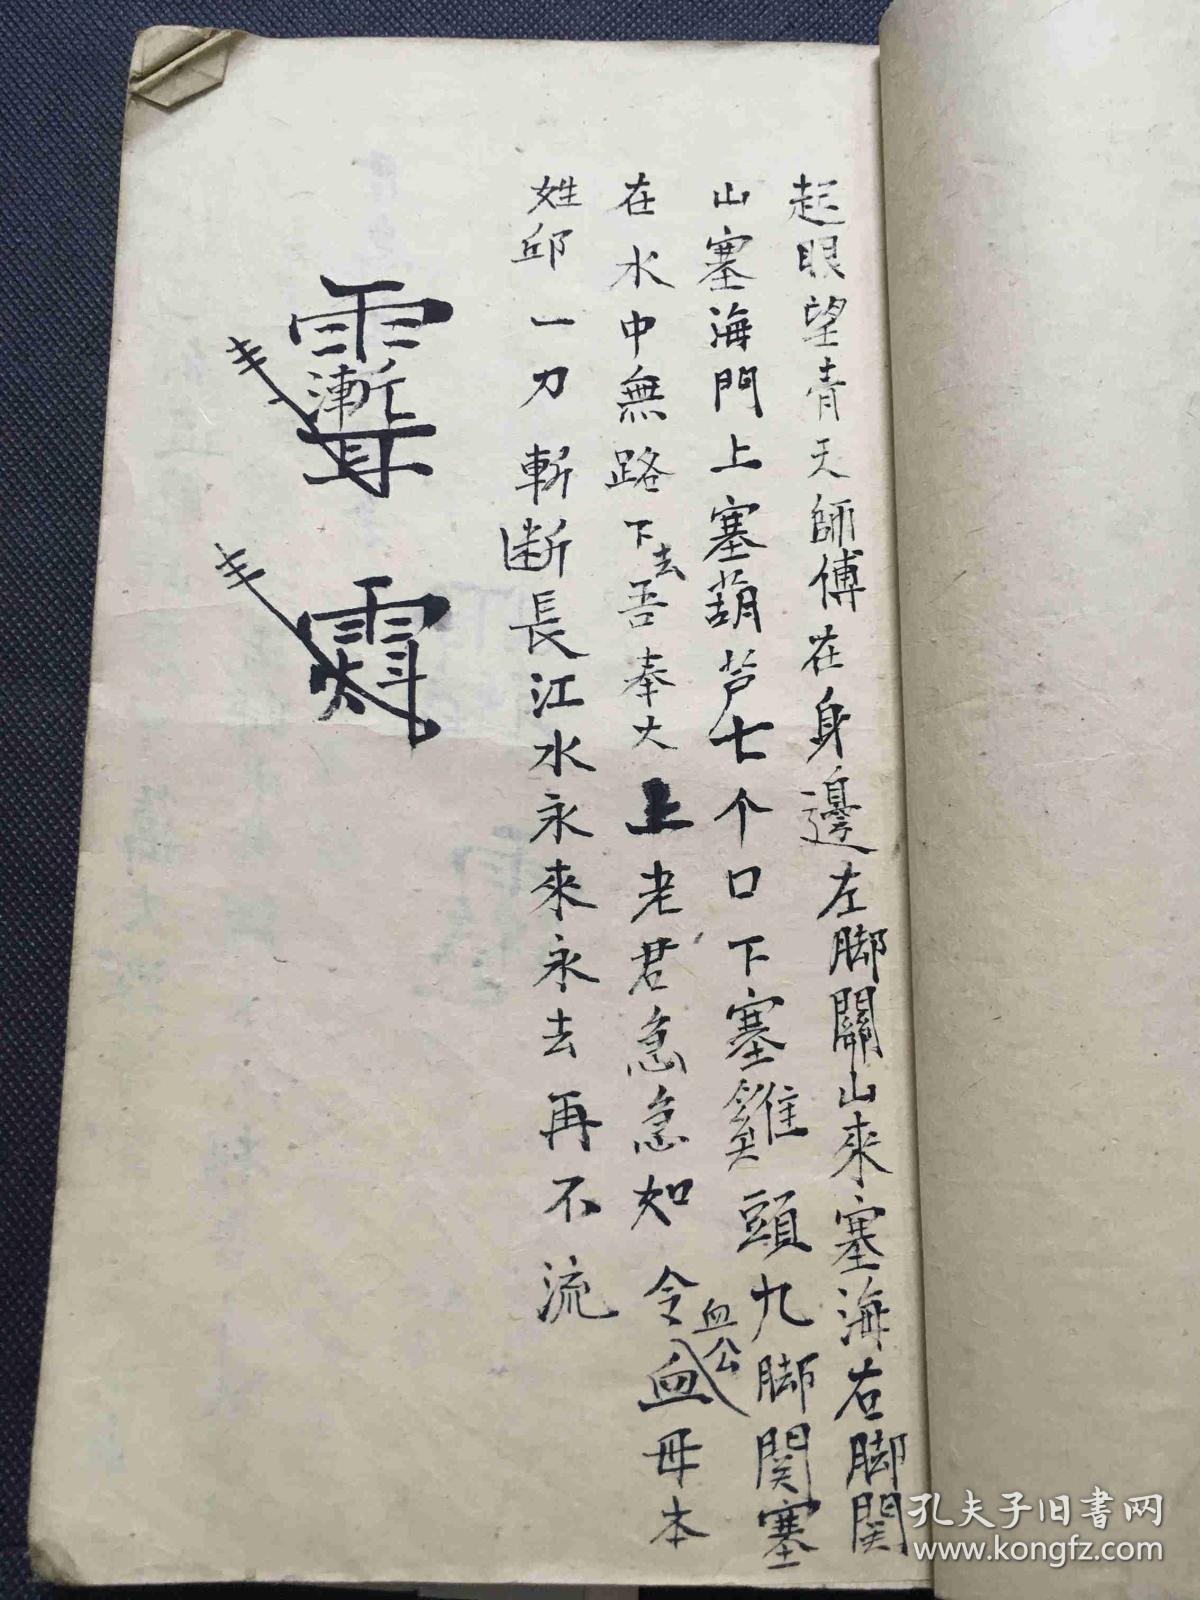 起眼望青天師傅在身邊左脚關山來塞海右脚関
山塞海門上塞葫芦七个口下塞雞頭九脚関塞
在水中無路下去吾奉大上老君急急如令血公血母本
姓邱一刀斬断長江水永來永去再不流
孔夫子旧書网
www.kongfz.com